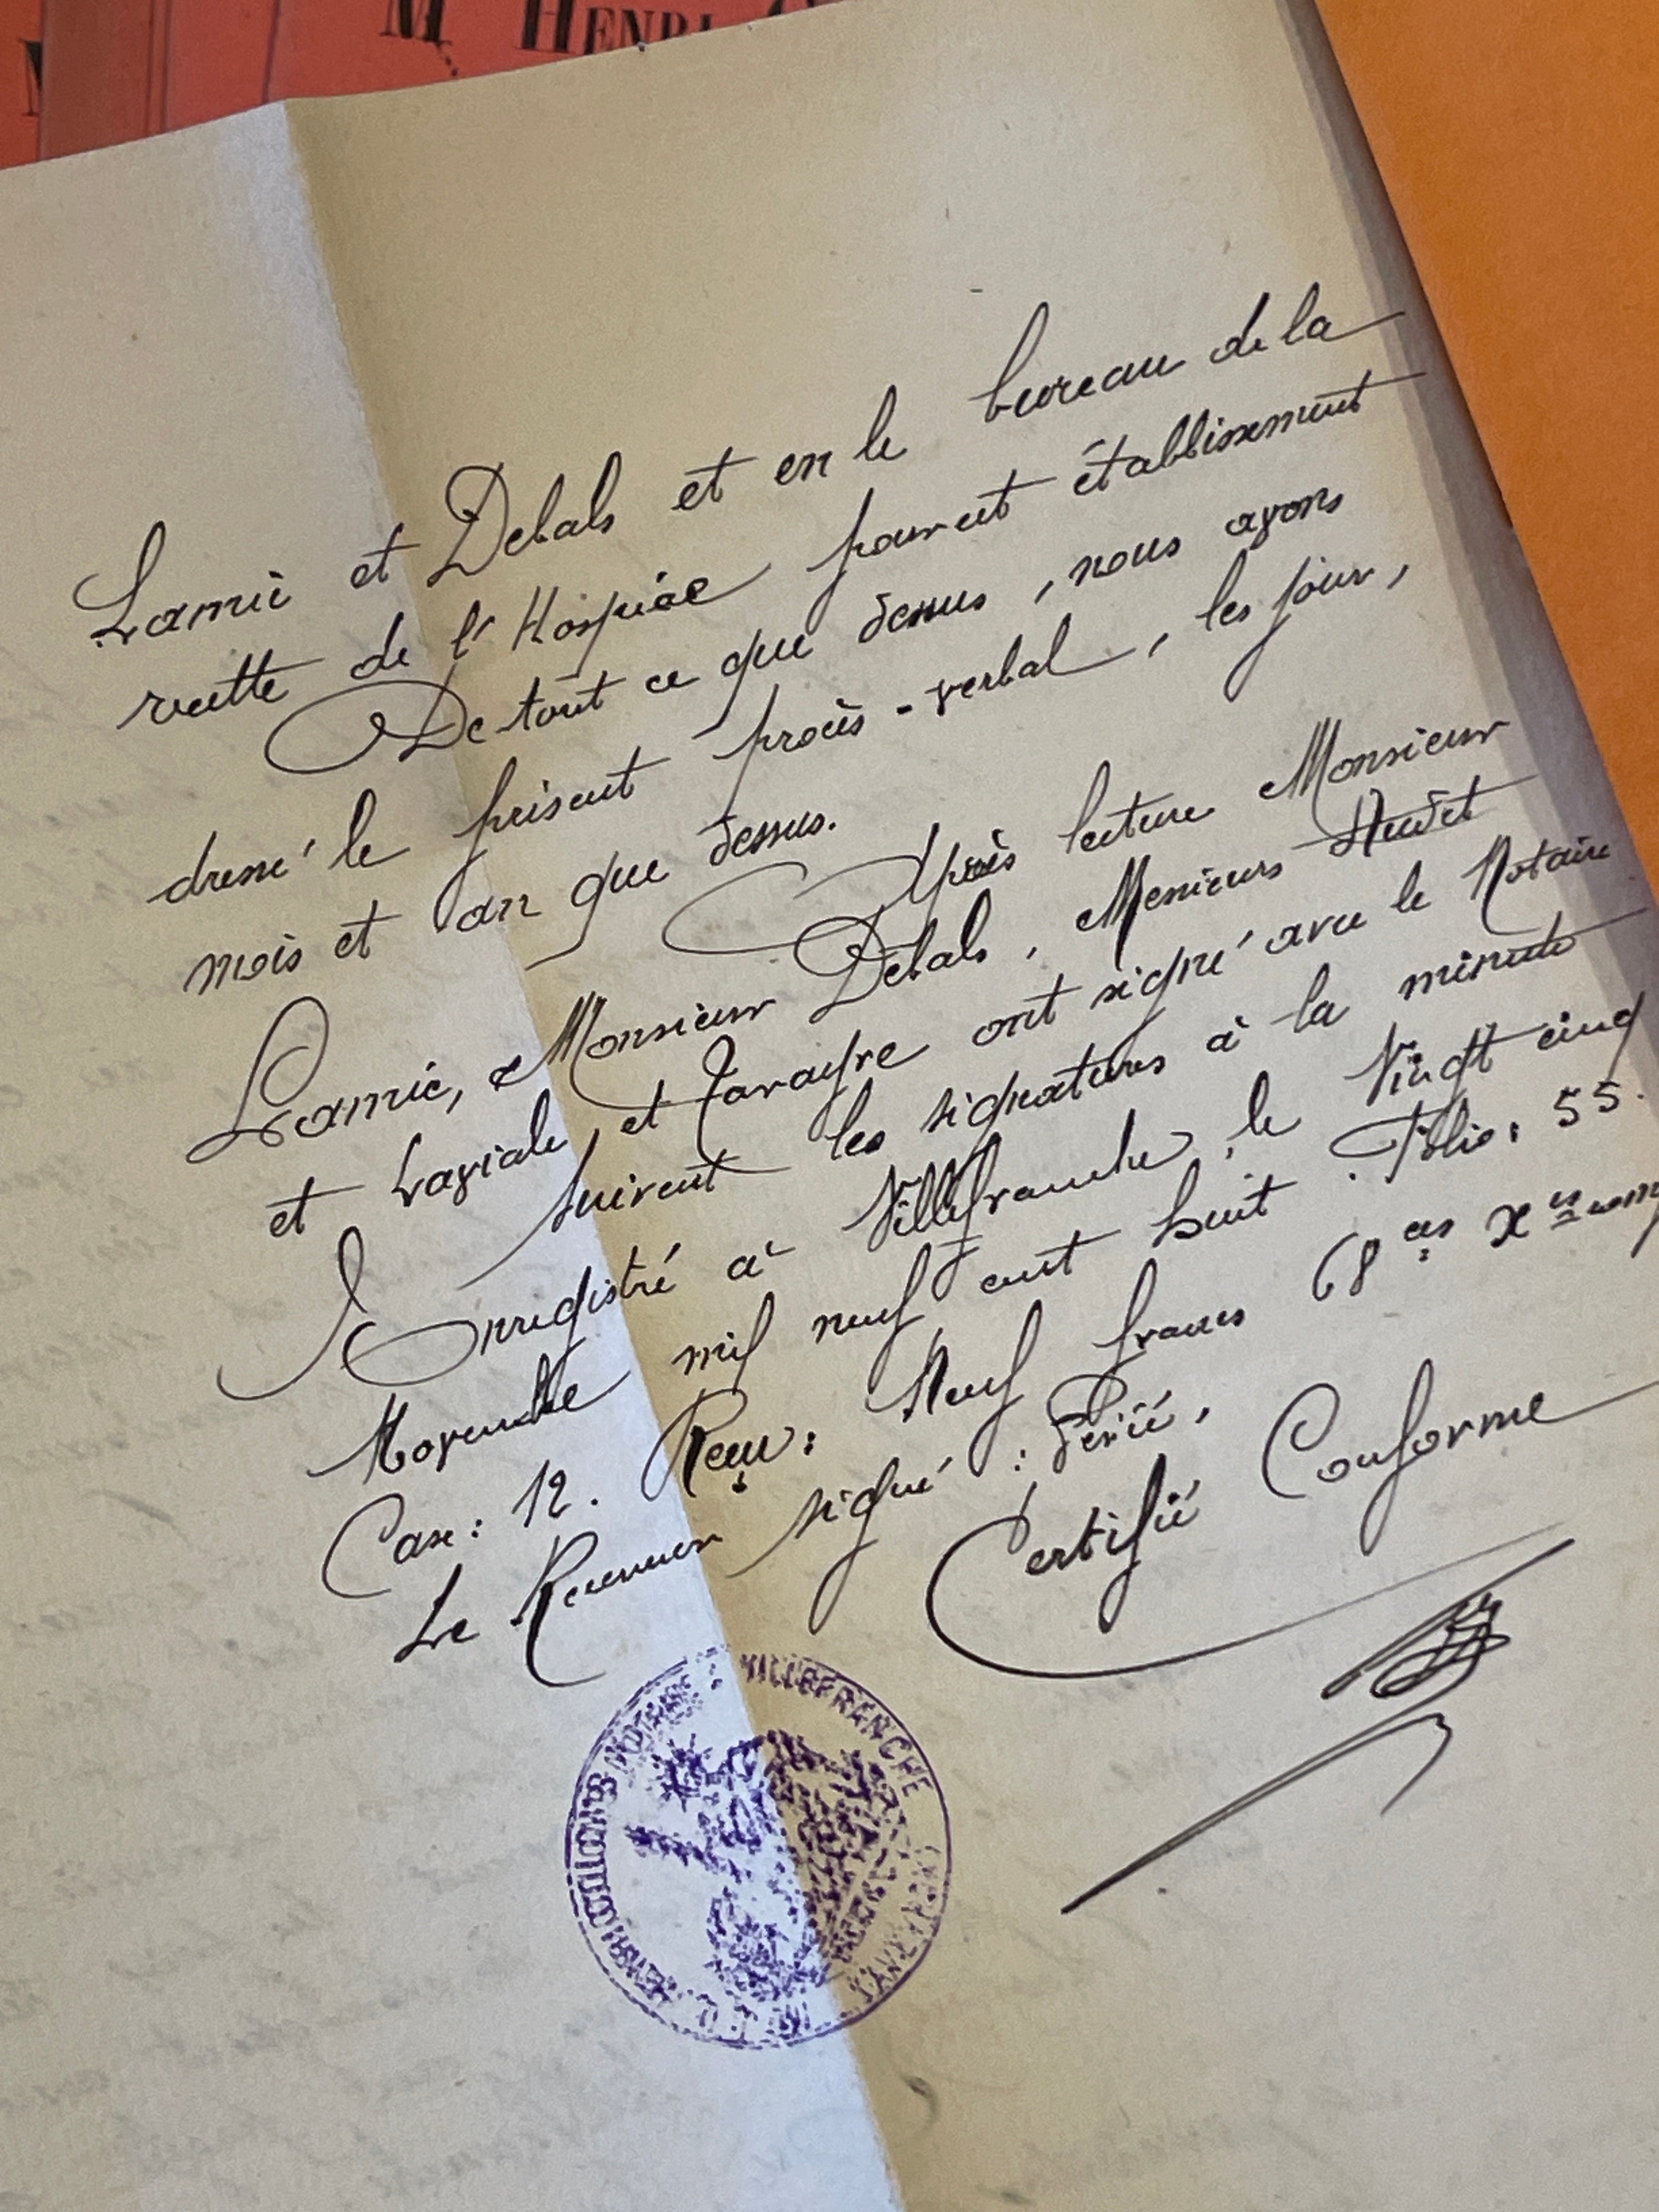 M HENRI
Lamic et Debals et en le bureau de la
recette de l'Hospice pour cet établissement
De tout ce que dessus, nous avons
dressé le présent procès-verbal, les jour,
mois et an que dessus.
Après lecture Monsieur
Lamic, Monsieur Debals, Messieurs
et Laviale et Tavayre ont signé avec le Notaire
Suivent les signatures à la minute
Enregistré à Villefranche, le Vingt cinq
Novembre mil neuf cent huit. Folio: 55.
Case: 12. Reçu: Neuf francs 68 ces
Le Receveur signé: Périé.
Certifié Conforme
NOTAIRE
VILLEFRANCHE
(AVEYRON)